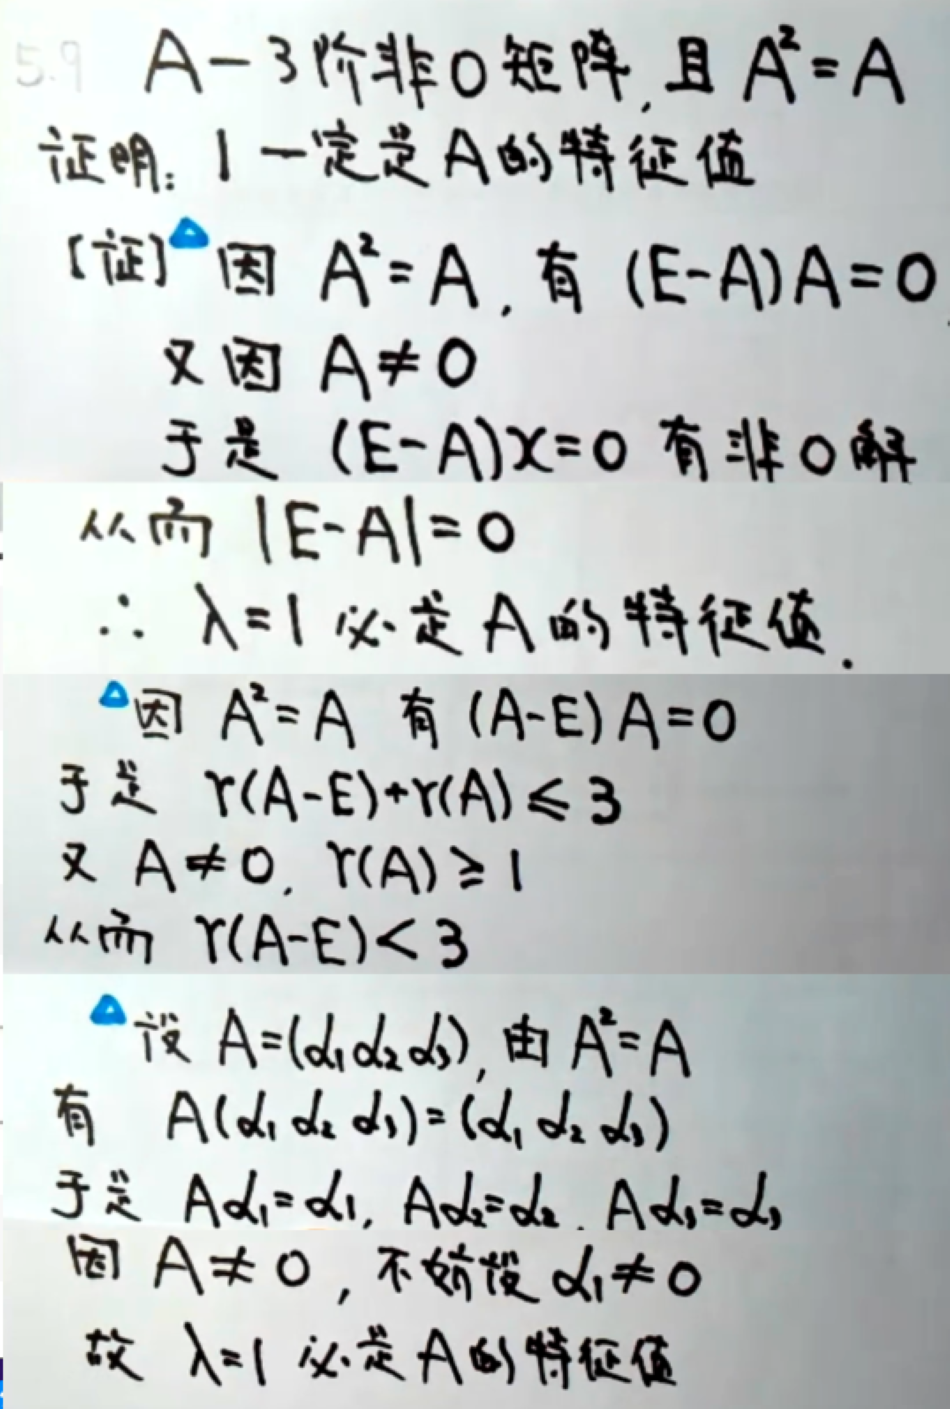 5.9 A-3阶非0矩阵,且 A²=A
证明: 1一定是A的特征值
[证] 因 A²=A, 有 (E-A)A=0
又因 A≠0
于是 (E-A)x=0 有非0解
从而 |E-A|=0
∴ λ=1 必是 A 的特征值.
因 A²=A 有 (A-E)A=0
于是 r(A-E)+r(A)≤3
又 A≠0, r(A)≥1
从而 r(A-E)<3
设 A=(α₁ α₂ α₃), 由 A²=A
有 A(α₁ α₂ α₃)=(α₁ α₂ α₃)
于是 Aα₁=α₁, Aα₂=α₂, Aα₃=α₃
因 A≠0, 不妨设 α₁≠0
故 λ=1 必是 A 的特征值